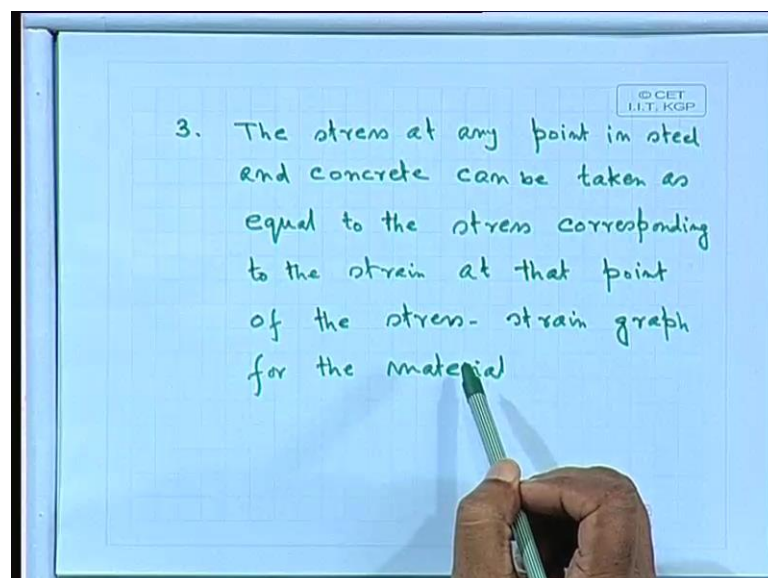 © CET
I.I.T. KGP
3. The stress at any point in steel
and concrete can be taken as
equal to the stress corresponding
to the strain at that point
of the stress- strain graph
for the material